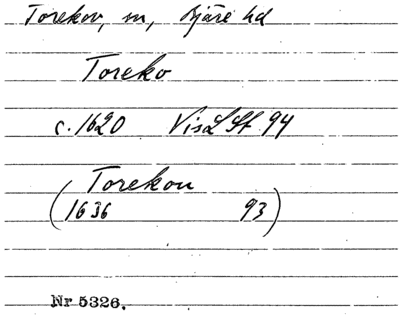 Torekov, sn, Bjäre hd
Toreko
c. 1620 VisLSt 94
(Torekou
1636 93)
Nr 5326.